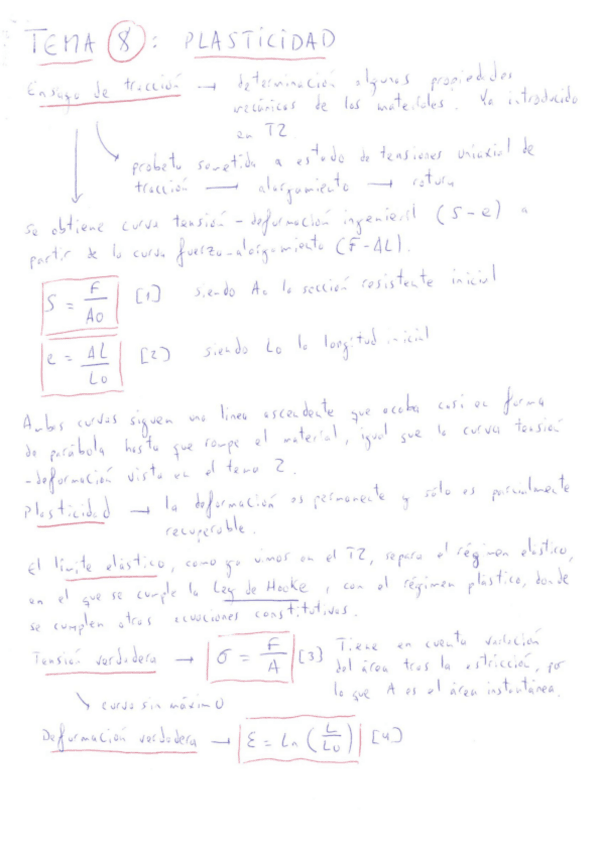 TEMA 8: PLASTICIDAD
Ensayo de tracción → determinación algunas propiedades
mecánicas de los materiales. Ya introducido
en T2.
probeta sometida a estado de tensiones uniaxial de
tracción → alargamiento → rotura
Se obtiene curva tensión-deformación ingenieril (S-e) a
partir de la curva fuerza-alargamiento (F-ΔL).
S = F/A0 [1] siendo A0 la sección resistente inicial
e = ΔL/L0 [2] siendo L0 la longitud inicial
Ambas curvas siguen una línea ascendente que acaba casi en forma
de parábola hasta que rompe el material, igual que la curva tensión
-deformación vista en el tema 2.
Plasticidad → la deformación es permanente y sólo es parcialmente
recuperable.
El límite elástico, como ya vimos en el T2, separa el régimen elástico,
en el que se cumple la Ley de Hooke, con el régimen plástico, donde
se cumplen otras ecuaciones constitutivas.
Tensión verdadera → σ = F/A [3] Tiene en cuenta variación
del área tras la estricción, por
lo que A es el área instantánea.
curva sin máximo
Deformación verdadera → ε = Ln (L/L0) [4]